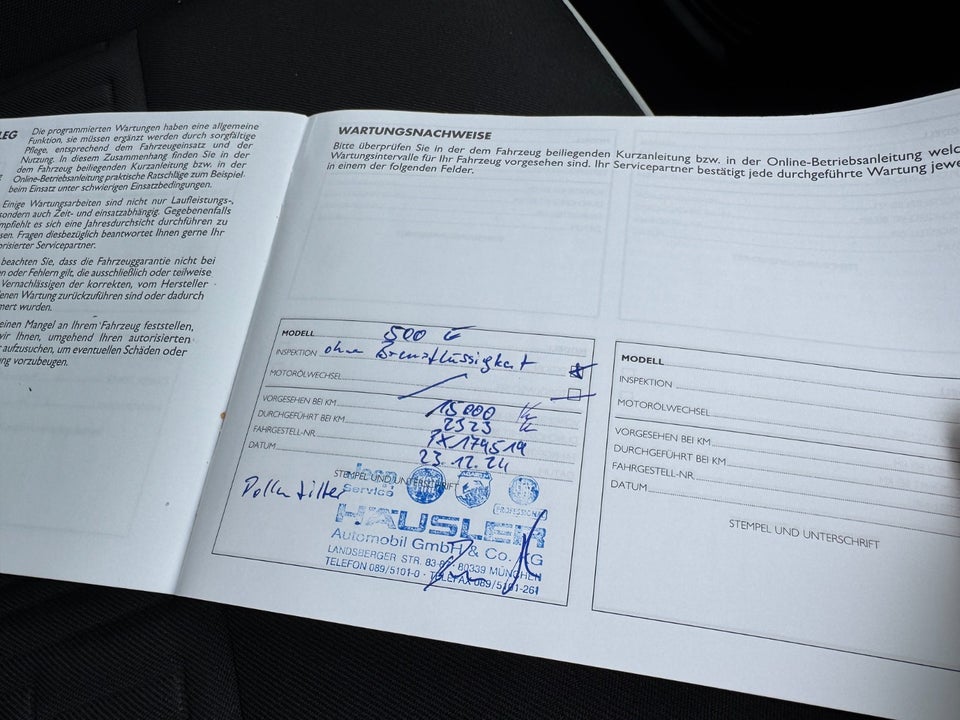 LEG
Die programmierten Wartungen haben eine allgemeine
Funktion, sie müssen ergänzt werden durch sorgfältige
Pflege, entsprechend dem Fahrzeugeinsatz und der
Nutzung. In diesem Zusammenhang finden Sie in der
dem Fahrzeug beiliegenden Kurzanleitung bzw. in der
Online-Betriebsanleitung praktische Ratschläge zum Beispiel
beim Einsatz unter schwierigen Einsatzbedingungen.
Einige Wartungsarbeiten sind nicht nur Laufleistungs-,
sondern auch Zeit- und einsatzabhängig. Gegebenenfalls
mpfiehlt es sich eine Jahresdurchsicht durchführen zu
sen. Fragen diesbezüglich beantwortet Ihnen gerne Ihr
orisierter Servicepartner.
beachten Sie, dass die Fahrzeuggarantie nicht bei
n oder Fehlern gilt, die ausschließlich oder teilweise
Vernachlässigen der korrekten, vom Hersteller
enen Wartung zurückzuführen sind oder dadurch
mert wurden.
einen Mangel an Ihrem Fahrzeug feststellen,
wir Ihnen, umgehend Ihren autorisierten
aufzusuchen, um eventuellen Schäden oder
ng vorzubeugen.
WARTUNGSNACHWEISE
Bitte überprüfen Sie in der dem Fahrzeug beiliegenden Kurzanleitung bzw. in der Online-Betriebsanleitung welc
Wartungsintervalle für Ihr Fahrzeug vorgesehen sind. Ihr Servicepartner bestätigt jede durchgeführte Wartung jewe
in einem der folgenden Felder.
MODELL 500 E
INSPEKTION ohne Bremsflüssigkeit
MOTORÖLWECHSEL
VORGESEHEN BEI KM 15000
DURCHGEFÜHRT BEI KM 2323
FAHRGESTELL-NR. PX179519
DATUM 23.12.24
STEMPEL UND UNTERSCHRIFT
Pollenfilter
Jeep
Service
PROFESSIONAL
HÄUSLER
Automobil GmbH & Co. KG
LANDSBERGER STR. 83-87, 80339 MÜNCHEN
TELEFON 089/5101-0 · TELEFAX 089/5101-261
MODELL
INSPEKTION
MOTORÖLWECHSEL
VORGESEHEN BEI KM
DURCHGEFÜHRT BEI KM
FAHRGESTELL-NR.
DATUM
STEMPEL UND UNTERSCHRIFT